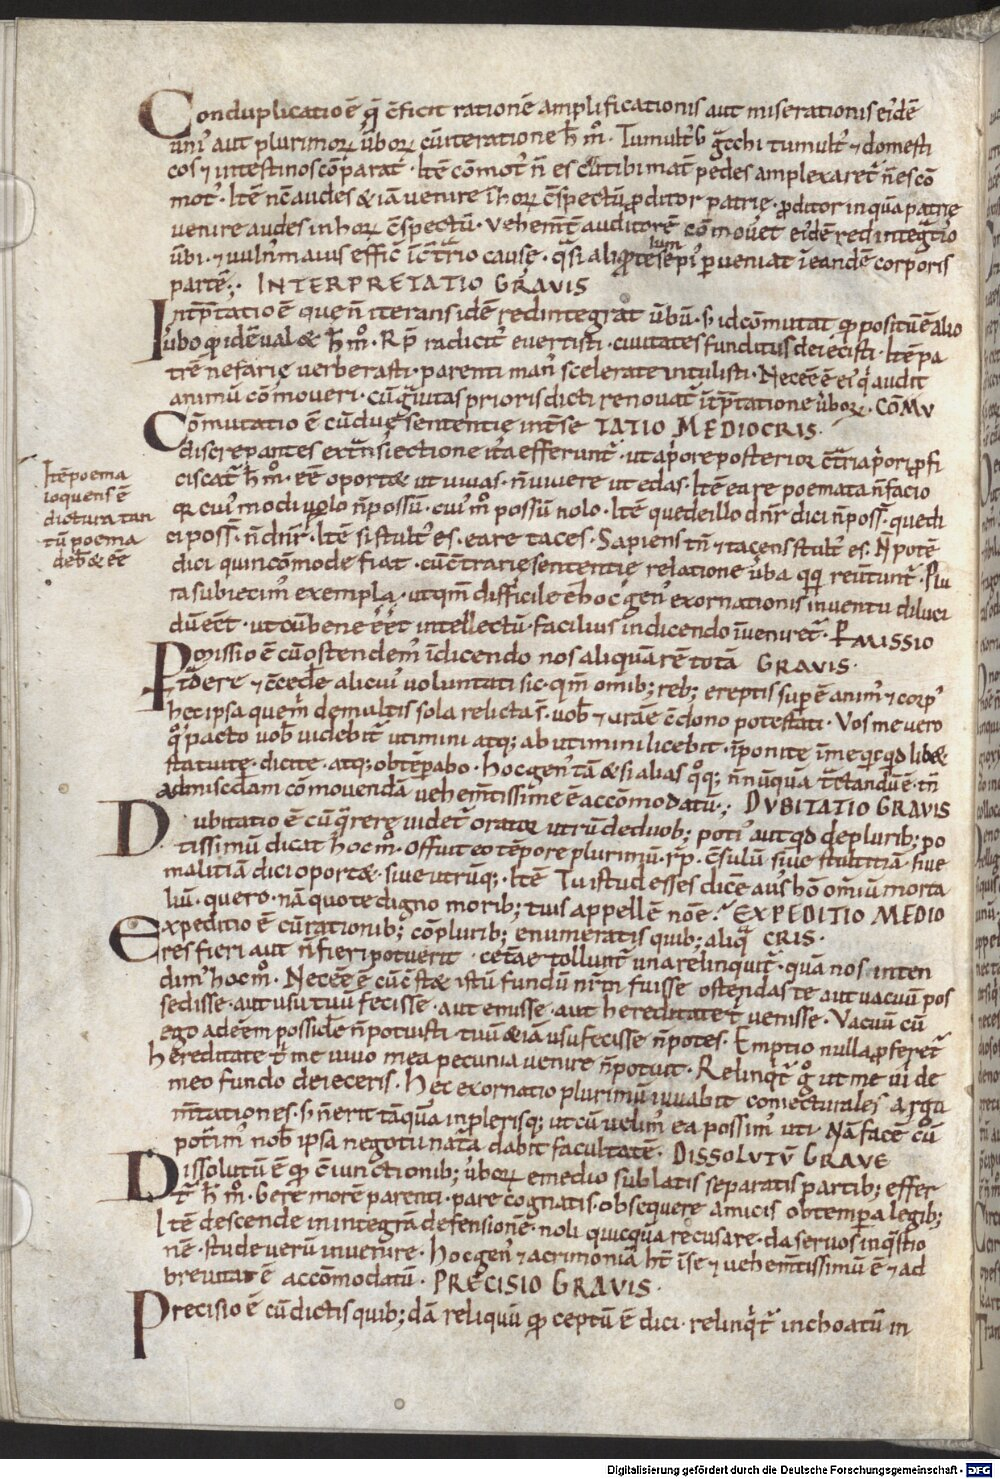 Conduplicatio ē q̄ c̄ficit rationē amplificationis aut miserationis ei'dē
uni' aut plurimorꝝ ūborꝝ cū iteratione h̄ m̊. Tumult' ḡcchi tumult' ⁊ domesti
cos ⁊ intestinos cōparat. Itē cōmot' n̄ es cū tibi mat̄ pedes amplexaret' n̄ es cō
mot'. Itē nc̄ audes & iā uenire ī horꝝ c̄spectū ꝓditor patrię. ꝓditor inquā patrię
uenire audes in horꝝ c̄spectū. Vehem̄t̄ auditorē cōmouet ei'dē redintegtio
ūbi. ⁊ uuln' maius effic̄ ī c̄trio causę. qsi aliꝙ telum sepi' ꝑueniat ī eandē corporis
partē. INTERPRETATIO GRAVIS
Intp̄tatio ē que n̄ iterans idē redintegrat ūbū. s; id cōmutat qꝰ positū ē alio
ūbo qꝰ idē ual& h̄ m̊. R̄P̄ radicit' euertisti. ciuitates funditus deiecisti. Itē pa
trē nefarię uerberasti. parenti man' scelerate intulisti. Necēē ē ei' q' audit
animū cōmoueri. cū g̓uitas prioris dicti renouat' īt̄p̄tatione ūborꝝ. COMV
Cōmutatio ē cū duę sententię int̄ se TATIO MEDIOCRIS.
discrepantes ex t̄nsiectione ita efferunt'. ut a p'ore posterior c̄t̄ria p'ori ꝓfi
ciscat' h̄ m̊. eē oport& ut uiuas. n̄ uiuere ut edas. Itē ea re poemata n̄ facio
qꝛ cui' modi uolo n̄ possū. cui' m̊ possū nolo. Itē que de illo dn̄r dici n̄ poss̄. que di
ci poss̄. n̄ dn̄r. Itē si stult' es. ea re taces. Sapiens tn̄ ⁊ tacens stult' es. N̄ potē
dici quin cōmode fiat. cū c̄trarię sententię relatione ūba qꝗ reūtunt'. Plu
ra subiecim' exempla. ut qm̄ difficile ē hoc gen' exornationis inuentu diluci
dū eēt. ut cū bene eēt intellectū. facilius in dicendo īueniret'. P̄MISSIO
Pmissio ē cū ostendem' ī dicendo nos aliquā rē totā GRAVIS.
t̄dere ⁊ c̄cede alicui' uoluntati sic. qm̄ omīb; reb; ereptis sup ē anim' ⁊ corp'
hec ipsa que m' de multis sola relicta s̄. uob̄ ⁊ urāe c̄dono potestati. Vos me uero
q̊ pacto uob̄ uidebit' utimini atq; abutimini licebit. īponite ī me qcqd lib&
statuite. dicite. atq; obtēpabo. Hoc gen' tā & si alias qoq; n̄n ūquā t̄ctandū ē. tn̄
ad misc̄dam cōmouendā uehem̄tissime ē accōmodatū. DVBITATIO GRAVIS
Dubitatio ē cū q̄rere uidet' orator utrū de duob; poti' aut qd de plurib; po
tissimū dicat hoc m̊. Offuit eo tēpore plurimū r̄p̄. c̄sulū siue stultitiā. siue
malitiā dici oport&. siue utrūq;. Itē Tu istud esses dicē aus' hō om̄iū morta
liū. quero. nā quo te digno morib; tuis appellē nōe. EXPEDITIO MEDIO
Expeditio ē cū rationib; cōplurib; enumeratis quib; aliq CRIS.
res fieri aut n̄ fieri potuerit. cet̄ae tollunt' una relinquit'. quā nos inten
dim' hoc m̊. Necēē ē cū c̄st& istū fundū nr̄m fuisse ostendas te aut uacuū pos
sedisse. aut usu tuū fecisse. aut emisse. aut hereditate t' uenisse. Vacuū cū
ego adeēm posside n̄ potuisti. tuū & iā usu fecisse n̄ potes. Emptio nulla ꝓferet'
hereditate t' me uiuo mea pecunia uenire n̄ potuit. Relinqt' g̊ ut me ui de
meo fundo deieceris. Hec exornatio plurimū iuuabit coniecturales argu
m̄tationes. s; n̄ erit tāquā in plerisq; ut cū uelim' ea possim' uti. Nā facē cū
pot'im' nob̄ ipsa negotii nat̄a dabit facultatē. DISSOLVTV̄ GRAVE
Dissolutū ē qꝰ c̄iunctionib; ūborꝝ e medio sublatis separatis partib; effer
t' h̄ m̊. Gere morē parenti. pare cognatis. obsequere amicis obtempera legib;
Itē descende in integrā defensionē. noli quicquā recusare. da seruos in q̄stio
nē. stude uerū inuenire. Hoc gen' ⁊ acrimoniā ht̄ ī se ⁊ uehem̄tissimū ē ⁊ ad
breuitatē accōmodatū. PRECISIO GRAVIS.
Precisio ē cū dictis quib; dā reliquū qꝰ ceptū ē dici. relinqt' inchoatū in
Itē poema
loquens ē
dictura tan
tū poema
deb& eē
Digitalisierung gefördert durch die Deutsche Forschungsgemeinschaft - DFG